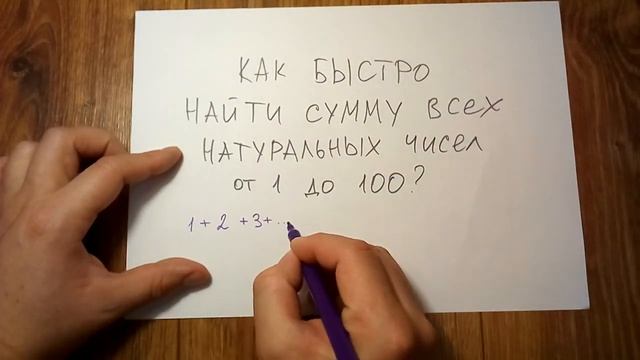 КАК БЫСТРО
НАЙТИ СУММУ ВСЕХ
НАТУРАЛЬНЫХ ЧИСЕЛ
ОТ 1 ДО 100?
1 + 2 + 3 + ...